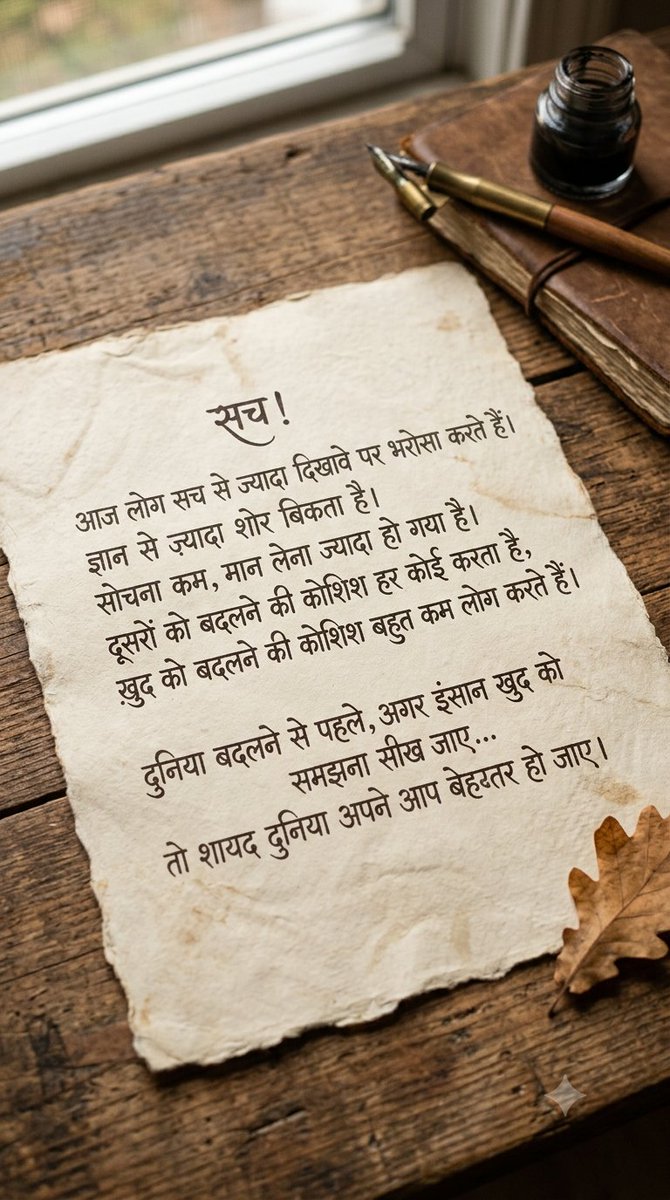 सच!
आज लोग सच से ज्यादा दिखावे पर भरोसा करते हैं।
ज्ञान से ज़्यादा शोर बिकता है।
सोचना कम, मान लेना ज्यादा हो गया है।
दूसरों को बदलने की कोशिश हर कोई करता है,
ख़ुद को बदलने की कोशिश बहुत कम लोग करते हैं।
दुनिया बदलने से पहले, अगर इंसान खुद को
समझना सीख जाए...
तो शायद दुनिया अपने आप हो जाए।